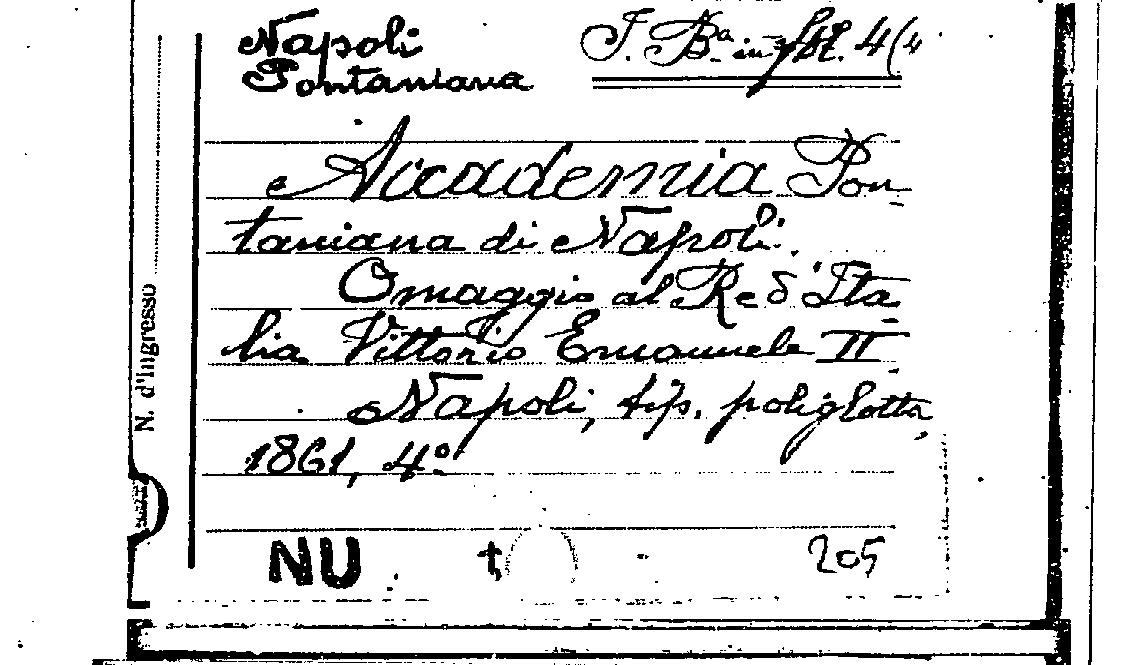 Napoli
Pontaniana
Accademia Pon-
taniana di Napoli.
Omaggio al Re d'Ita-
lia Vittorio Emanuele II
Napoli, tip. poliglotta,
1861, 4º
N. d'Ingresso
NU
205